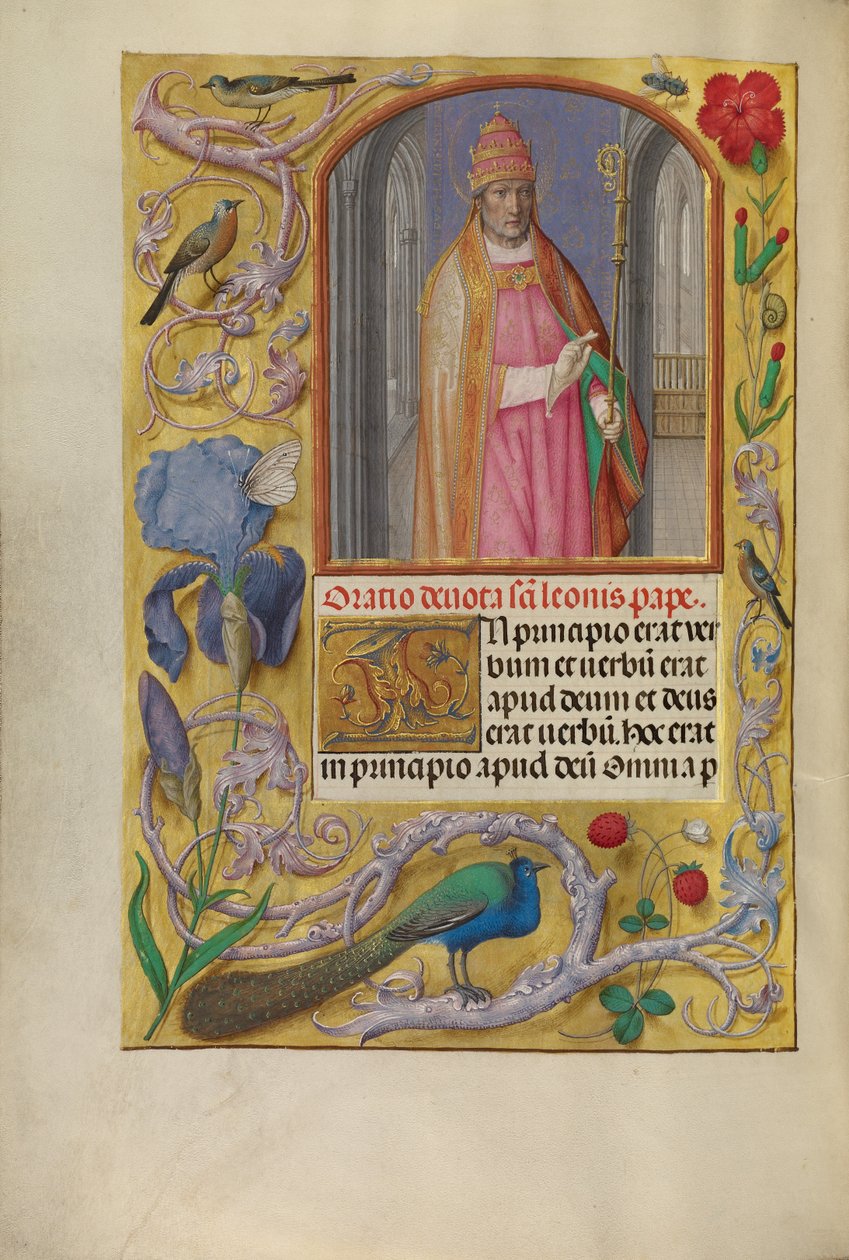 Oratio deuota sc̄i leonis pape.
IN principio erat ver
bum et uerbū erat
apud deum et deus
erat uerbū. Hoc erat
in principio apud deū Omnia p